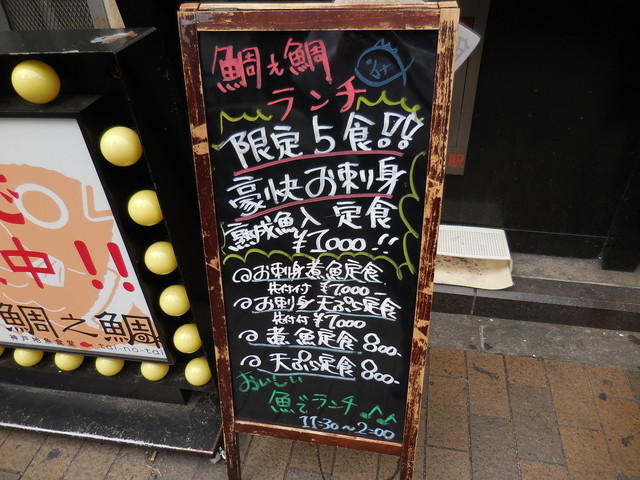 鯛も鯛
ランチ
限定5食!!
豪快お刺身
熟成魚入定食
¥1000!!
お刺身煮魚定食
¥1000
お刺身天ぷら定食
¥1000
煮魚定食 800-
天ぷら定食 800-
おいしい
魚でランチ
11:30~2:00
中!!
鯛之鯛
神戸地魚食堂
tai-no-tai